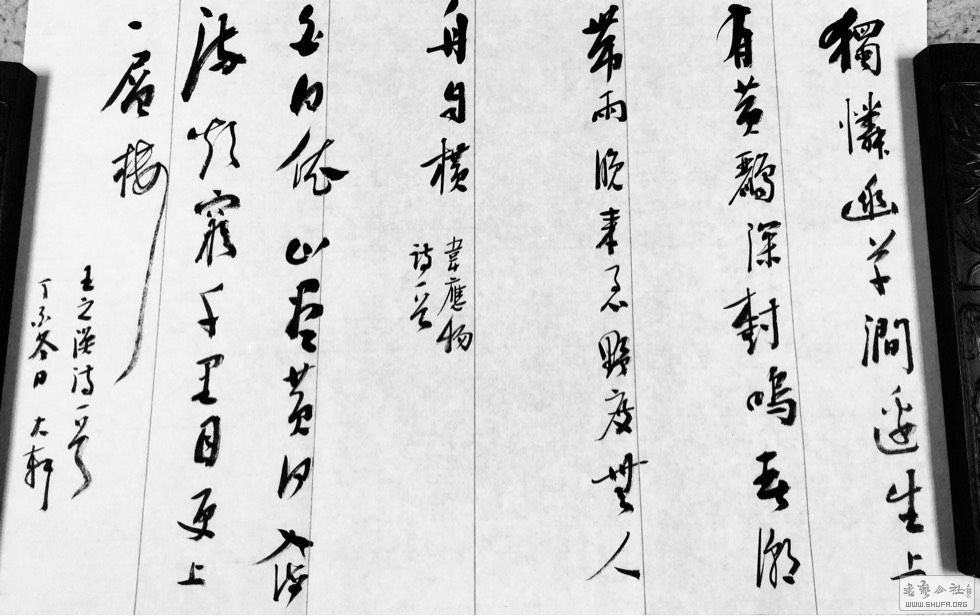 獨憐幽草澗邊生上
有黃鸝深樹鳴春潮
帶雨晚来急野度無人
舟自橫
韋應物
詩一首
白日依山盡黃河入海
流欲窮千里目更上
一層樓
王之渙詩一首
丁酉冬日 大軒
書藝公社
WWW.SHUFA.ORG